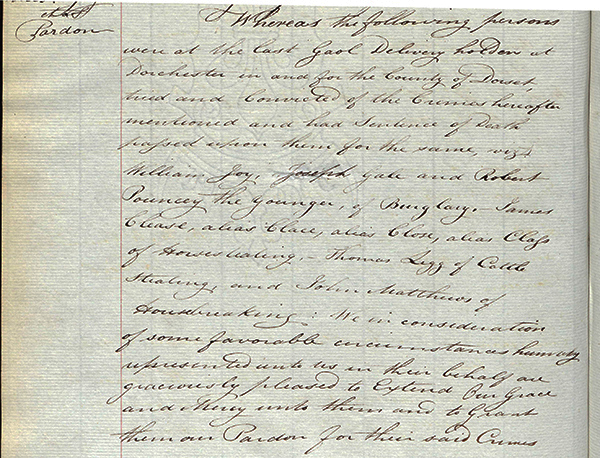 Pardon
Whereas the following persons
were at the last Gaol Delivery holden at
Dorchester in and for the County of Dorset,
tried and Convicted of the Crimes hereafter
mentioned and had Sentence of Death
passed upon them for the same, viz.t
William Joy, Joseph Gale and Robert
Pouncey the Younger, of Burglary. James
Clease, alias Clace, alias Close, alias Class
of Horsestealing, - Thomas Legg of Cattle
Stealing, and John Matthews of
Housebreaking: We in consideration
of some favorable circumstances humbly
represented unto us in their behalf are
graciously pleased to Extend Our Grace
and Mercy unto them and to Grant
them our Pardon for their said Crimes